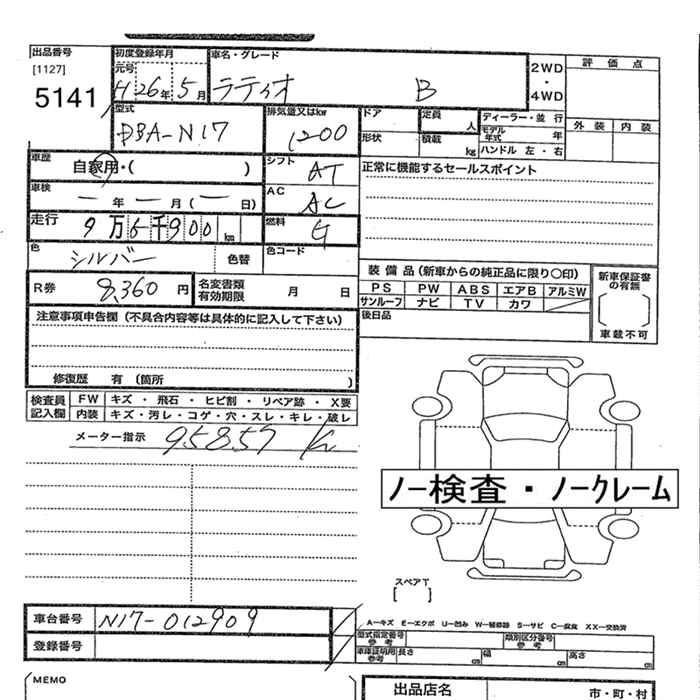 出品番号 初度登録年月 車名・グレード 評価点
[1127] 元号 2WD
5141 H26年5月 ラティオ B ・
4WD
型式 排気量又はkw ドア 定員 人 ディーラー・並行 外装 内装
DBA-N17 1200 形状 積載 kg モデル年式 年
ハンドル 左・右
車歴 シフト 正常に機能するセールスポイント
自家用・( ) AT
車検 AC
ー年ー月(ー日) AC
走行 燃料
9万5千900km G
色 色コード
シルバー 色替
装備品(新車からの純正品に限り〇印) 新車保証書の有無
R券 8,360円 名変書類有効期限 月 日 PS PW ABS エアB アルミW
サンルーフ ナビ TV カワ
注意事項申告欄(不具合内容等は具体的に記入して下さい) 後日品 車載不可
修復歴 有(箇所 )
検査員 FW キズ・飛石・ヒビ割・リペア跡・X要
記入欄 内装 キズ・汚レ・コゲ・穴・スレ・キレ・破レ
メーター指示 95857 K
ノー検査・ノークレーム
スペアT
[ ]
車台番号 N17-012909
A-キズ E-エクボ U-凹み W-補修跡 S-サビ C-腐食 XX-交換済
登録番号 型式指定番号 参考 類別区分番号 参考
車庫証明用 参考 長さ cm 幅 cm 高さ cm
MEMO
出品店名 市・町・村